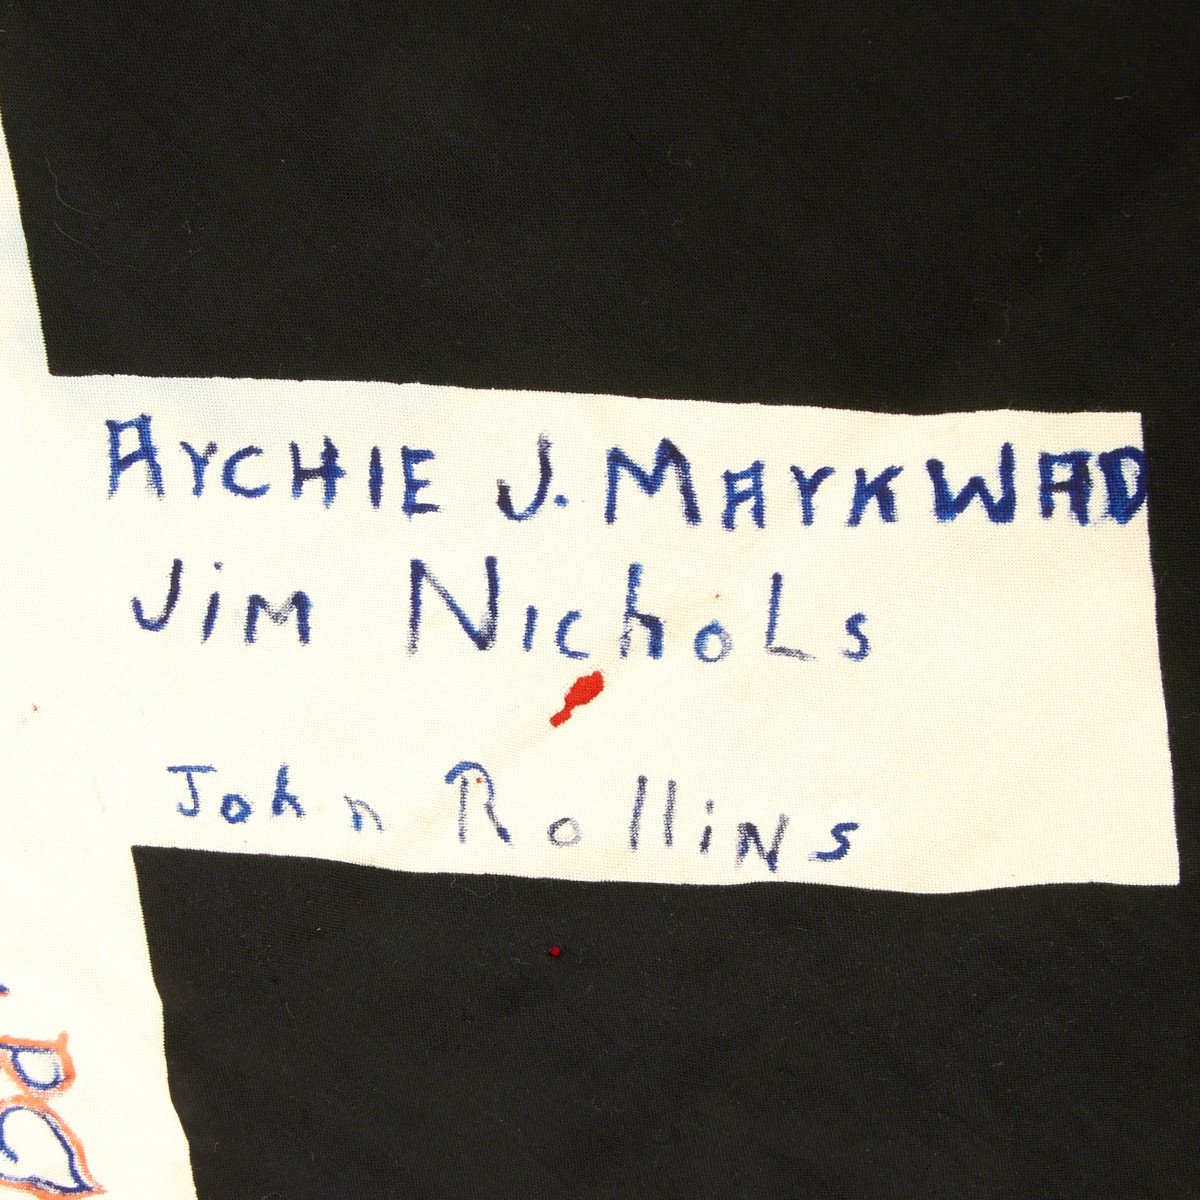 ArCHIE J. MArKWAD
JiM NichoLs
John RolliNs